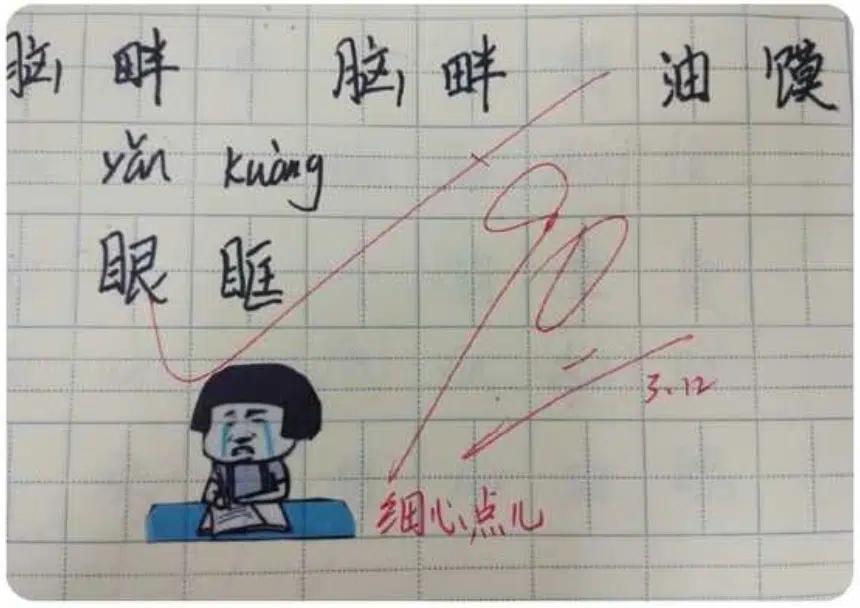 脑畔 脑畔 油馍
yǎn kuàng
眼眶
90
3.12
细心点儿